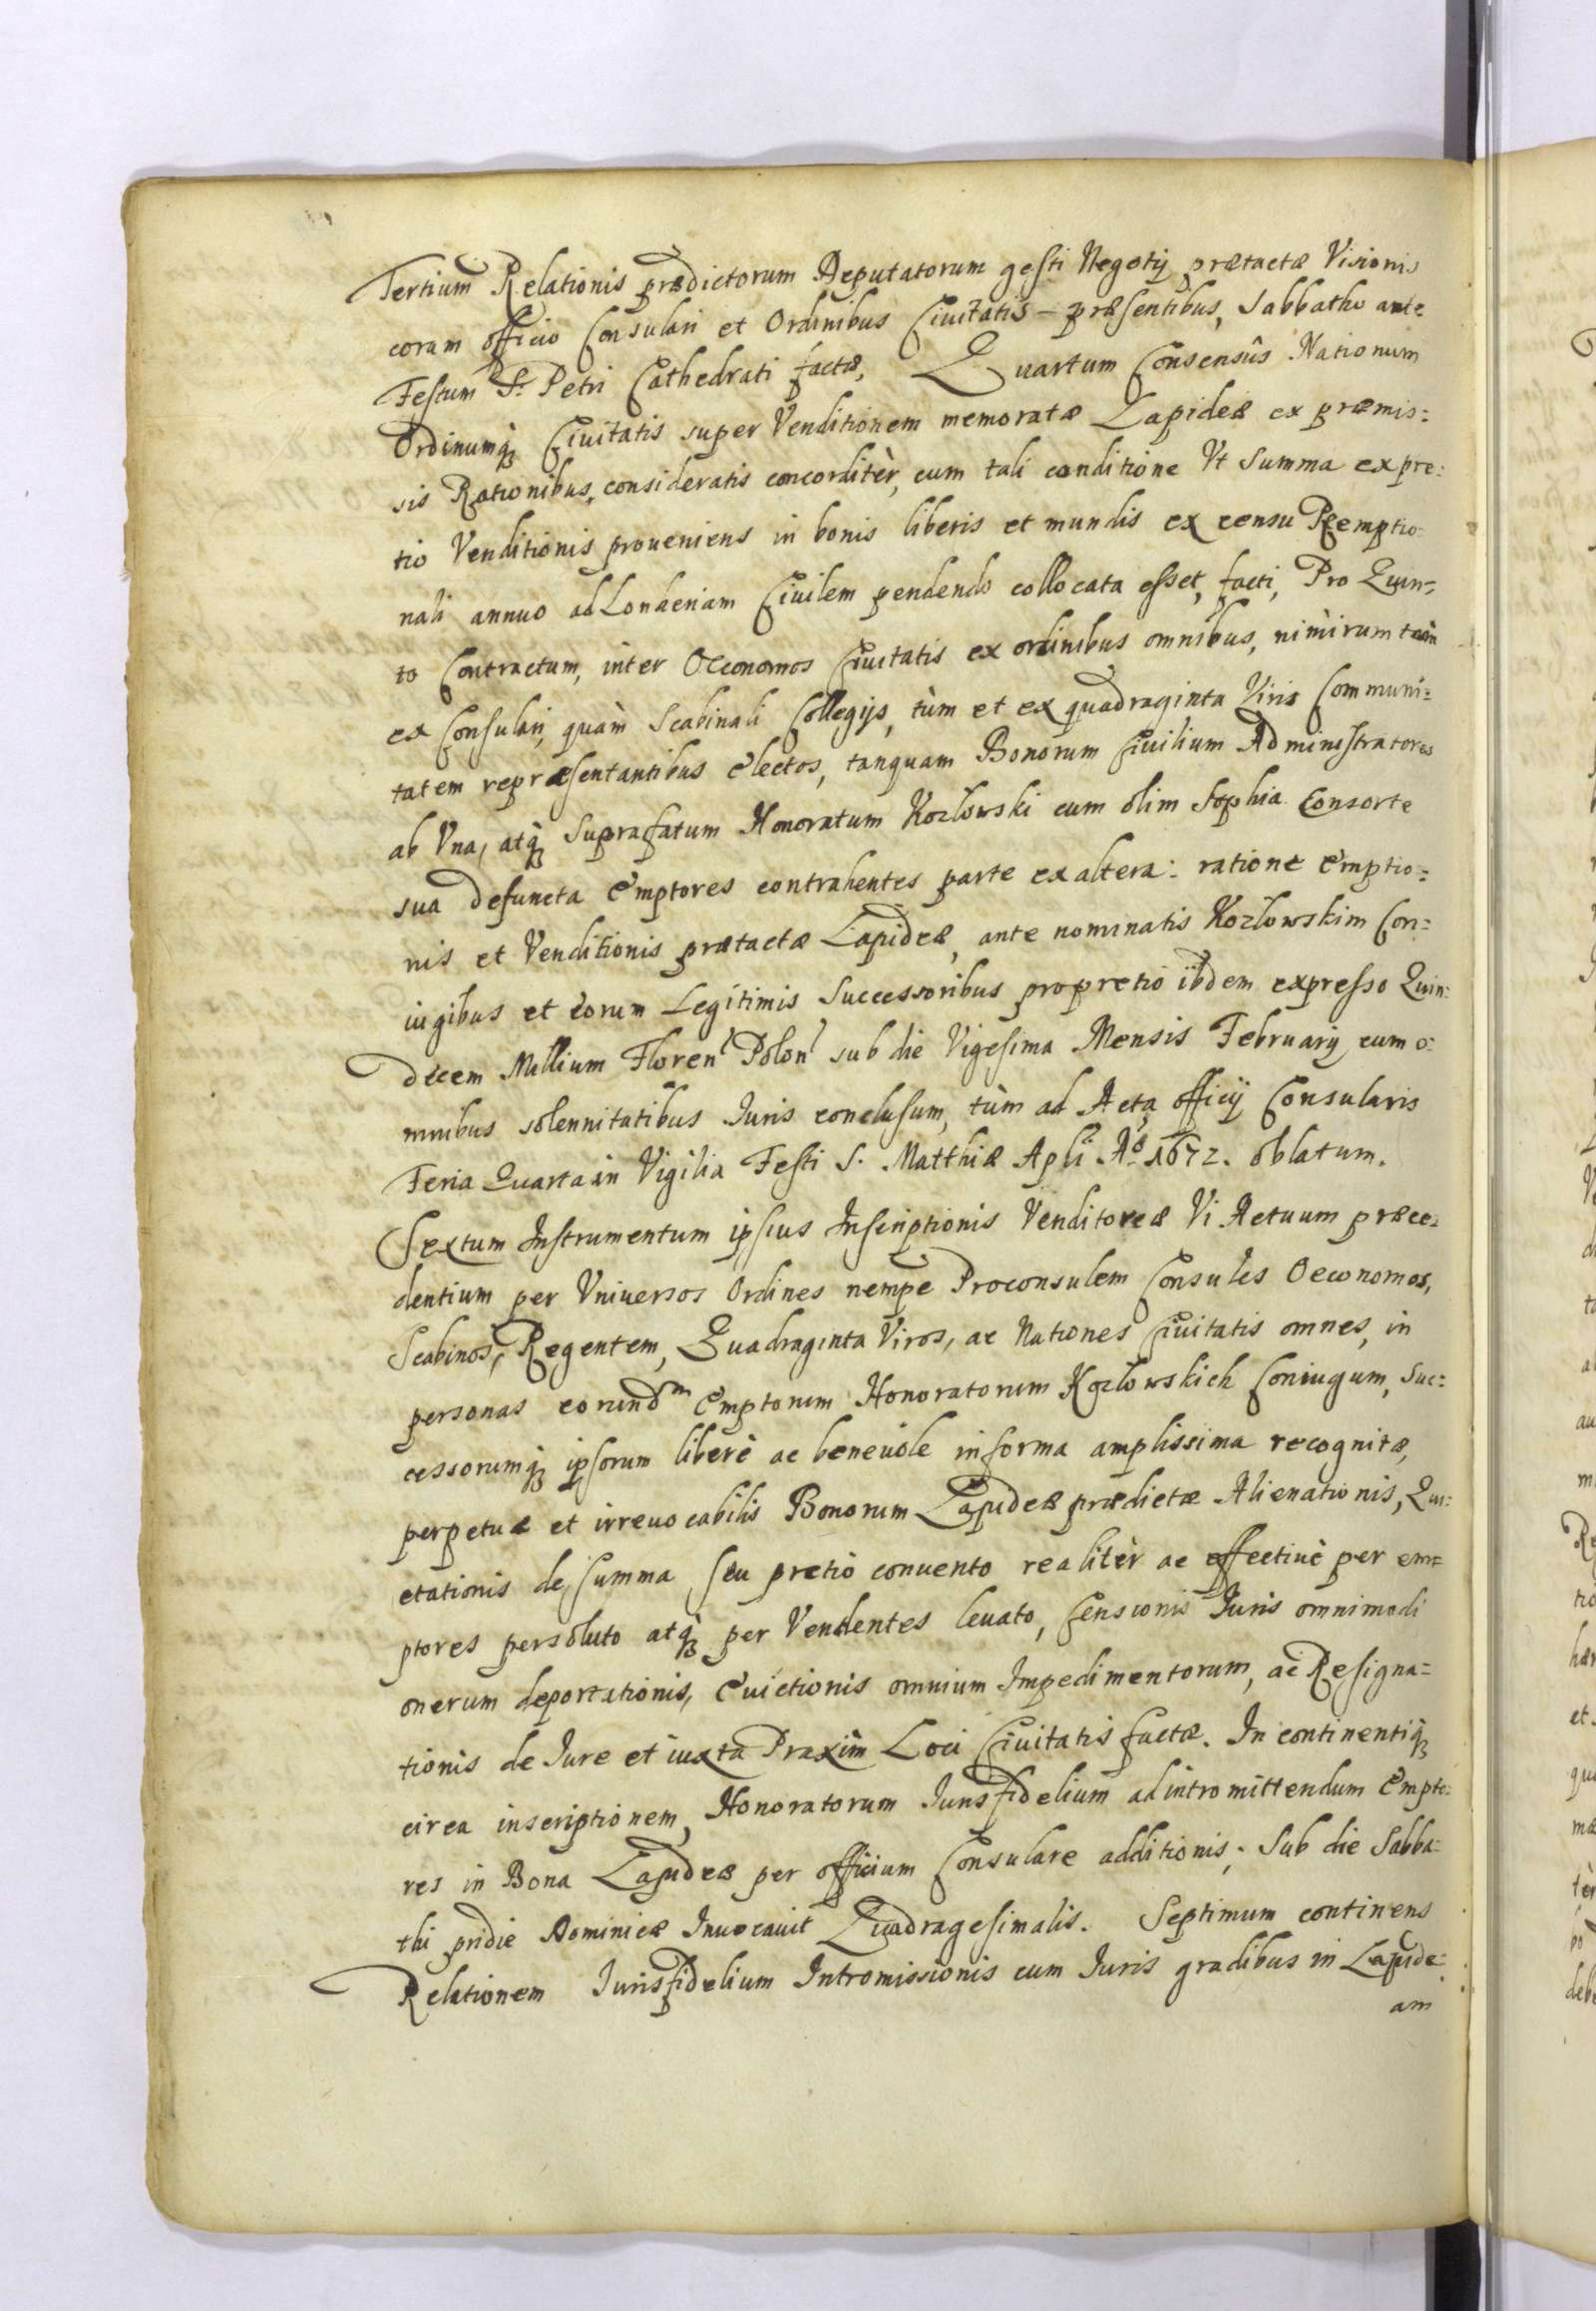 Tertium Relationis prædictorum Deputatorum gesti Negotij prætactæ Visionis
coram officio Consulari et Ordinibus Ciuitatis – præsentibus, Sabbatho ante
Festum S. Petri Cathedrati factæ, Quartum Consensûs Nationum
Ordinumq; Ciuitatis super Venditionem memoratæ Lapideæ ex præmis=
sis Rationibus, consideratis concorditèr, cum tali conditione Vt Summa ex pre=
tio Venditionis proueniens in bonis liberis et mundis ex censu Reemptio=
nali annuo ad Lonheriam Ciuilem pendendo collocata esset, facti, Pro Quin=
to Contractum, inter Oeconomos Ciuitatis ex ordinibus omnibus, nimirum tam
ex Consulari, quàm Scabinali Collegijs, tùm et ex quadraginta Viris Communi=
tatem repræsentantibus electos, tanquam Bonorum Ciuilium Administratores
ab Vna, atq; Suprafatum Honoratum Kozlowski cum olim Sophia Consorte
sua defuncta Emptores contrahentes parte ex altera: ratione Emptio=
nis et Venditionis prætactæ Lapideæ, ante nominatis Kozlowskim Con=
iugibus et eorum Legitimis Successoribus pro pretio ibdem expresso Quin=
decem Millium Floren Polon sub die Vigesima Mensis February, cum o=
mnibus solennitatibus Iuris conclusum, tùm ad Acta officij Consularis
Feria Quarta in Vigilia Festi S. Matthiæ Apli Aō 1672. oblatum.
Sextum Instrumentum ipsius Inscriptionis Venditoreæ Vi Actuum præce=
dentium per Vniuersos Ordines nempe Proconsulem Consules Oeconomos,
Scabinos, Regentem, Quadraginta Viros, ac Nationes Ciuitatis omnes, in
personas eorundm Emptorum Honoratorum Kozlowskich Coniugum, Suc=
cessorumq; ipsorum liberè ac beneuole in forma amplissima recognitæ,
perpetuæ et irreuocabilis Bonorum Lapideæ prædictæ Alienationis, Qui=
etationis de summa seu pretio conuento realitèr ac effectiuè per em=
ptores persoluto atq; per Vendentes leuato, Censionis Iuris omnimodi
onerum deportationis, Euictionis omnium Impedimentorum, ac Resigna=
tionis de Iure et iuxta Praxim Loci Ciuitatis factæ. In continentiq;
circa inscriptionem, Honoratorum Iurisfidelium ad intromittendum Empto=
res in Bona Lapideæ per officium Consulare additionis, Sub die Sabba=
thi pridie Dominicæ Inuocauit Quadragesimalis. Septimum continens
Relationem Jurisfidelium Intromissionis cum Iuris gradibus in Lapide=
am